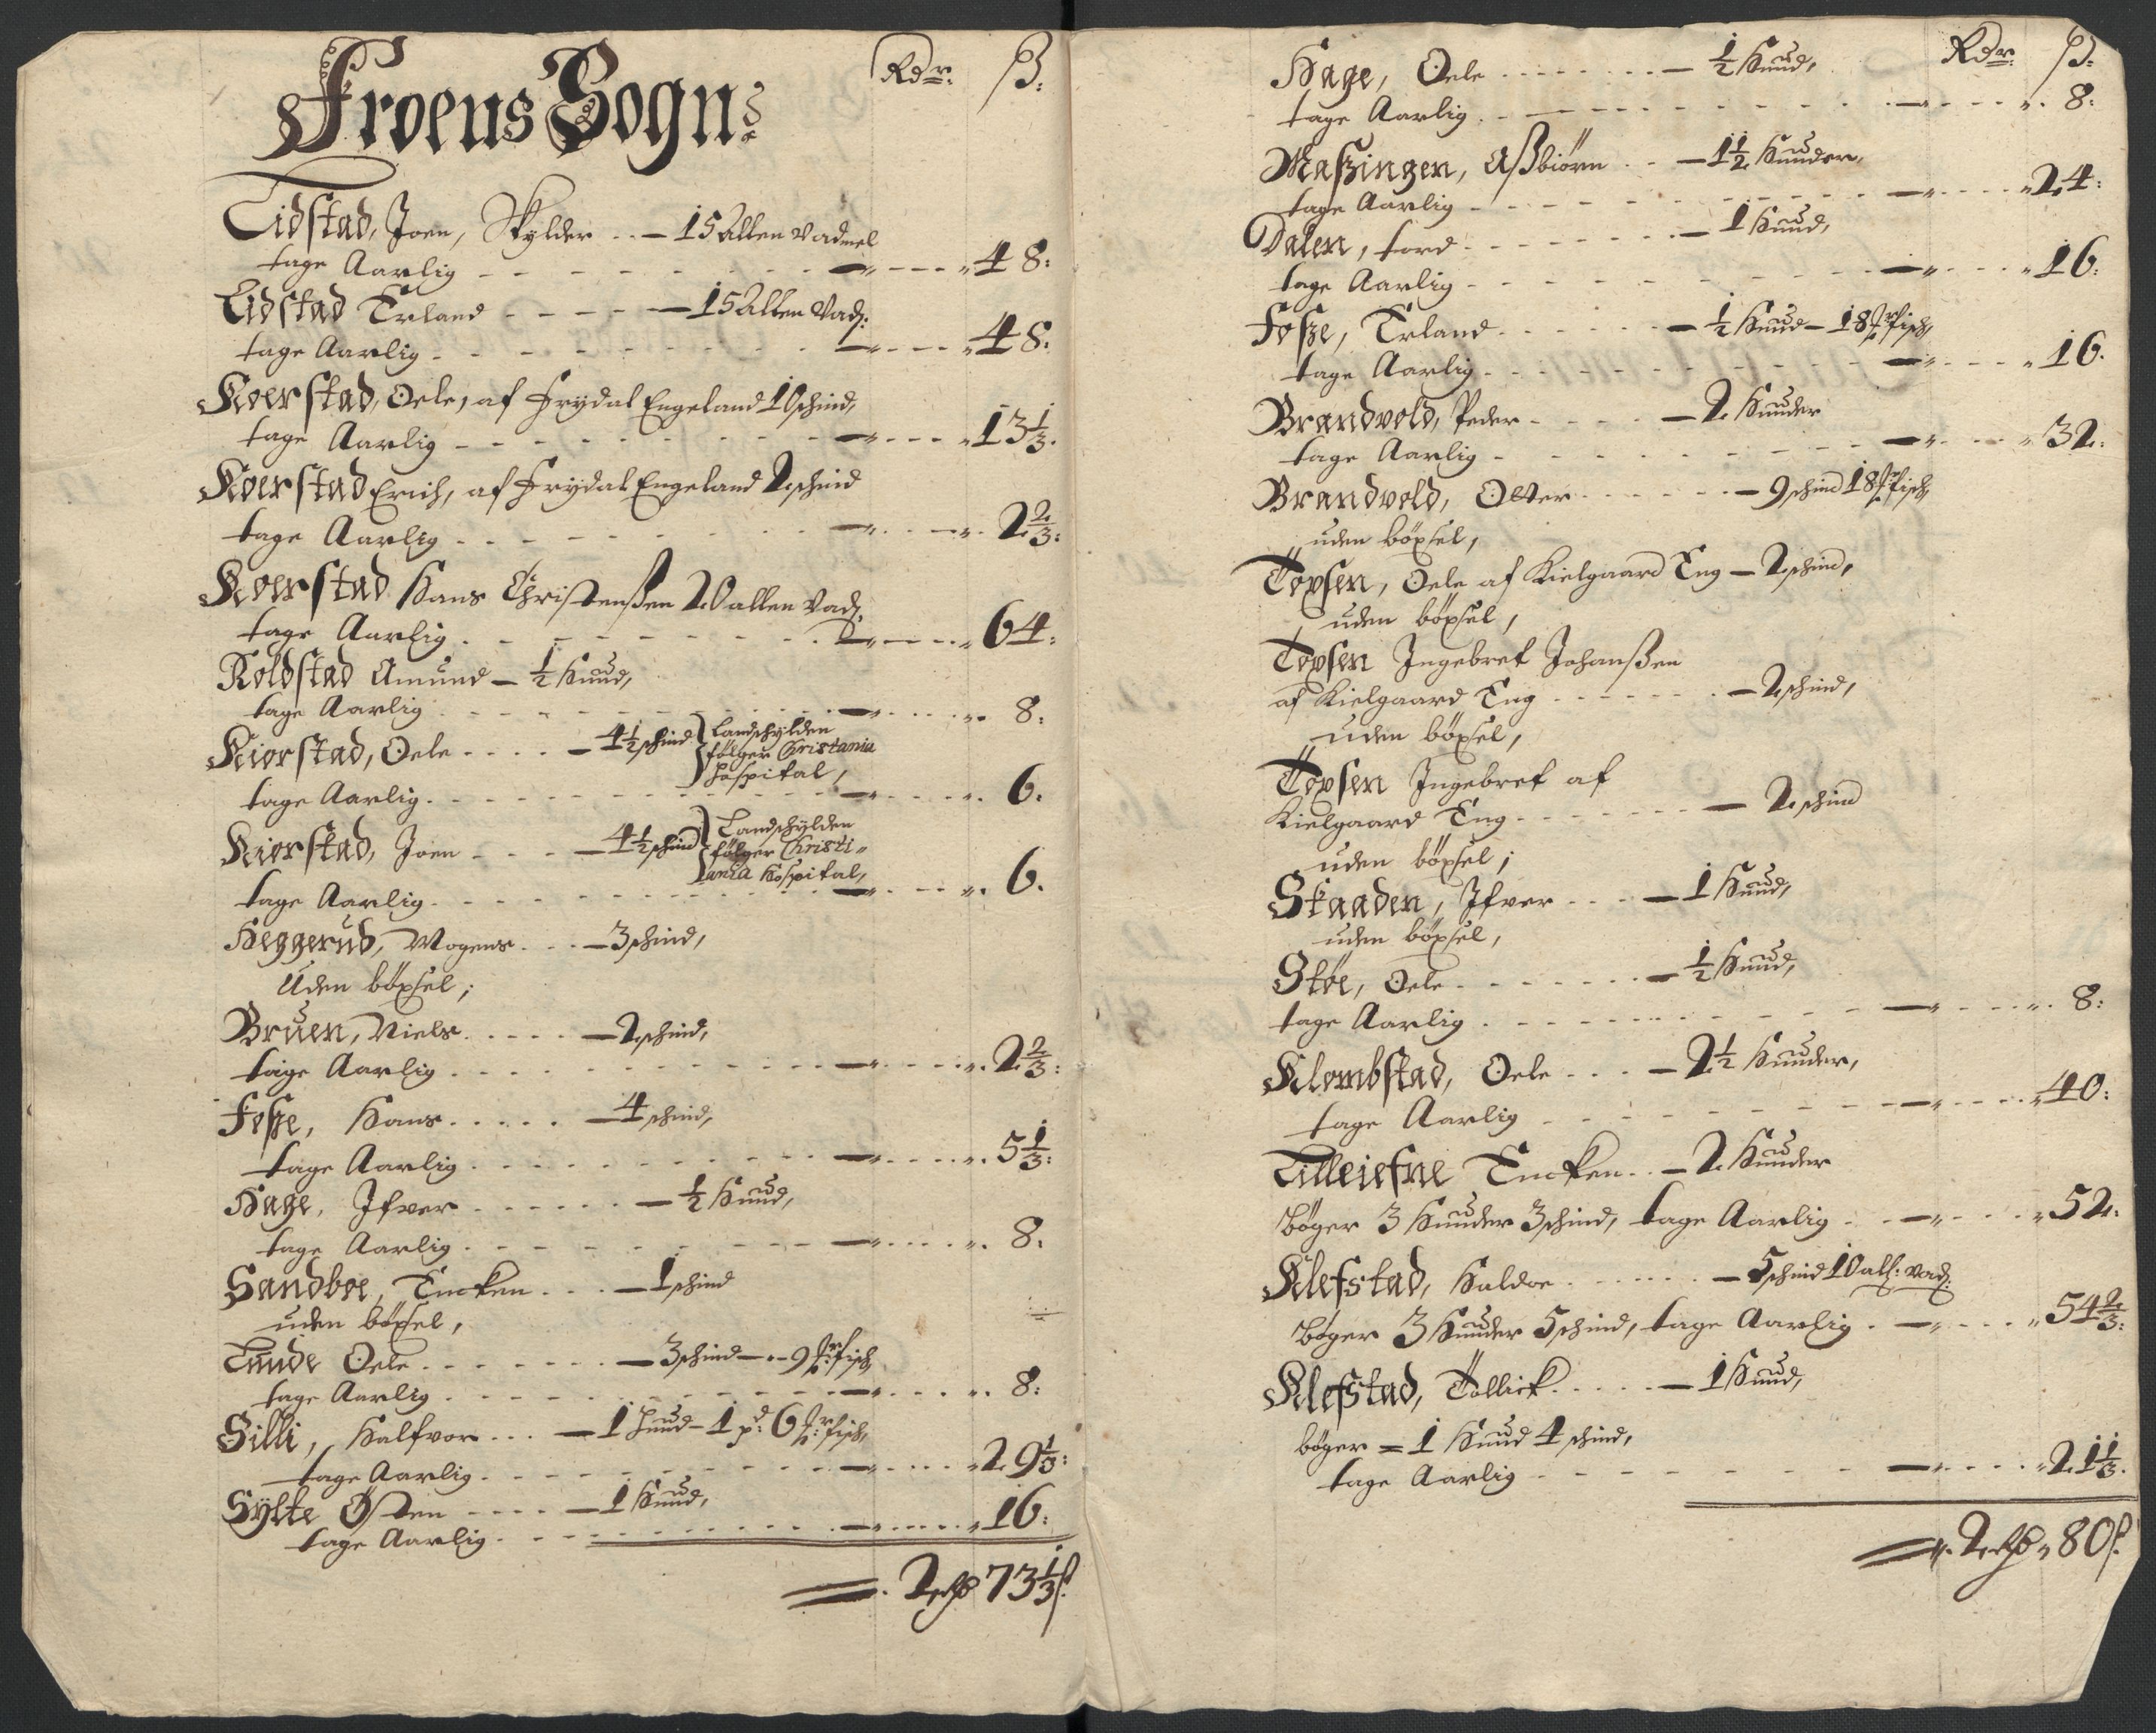 Froens Sogn:
Rdr: ß:
Lidstad, Joen, Skylder - 15 Allen Vadmel
tage Aarlig 48:
Lidstad Erland - 15 Allen Vad:
tage Aarlig 48:
Koerstad, Oele, af Frydal Engeland 10 schind,
tage Aarlig 13 1/3.
Koerstad Erich, af Frydal Engeland 2 schind
tage Aarlig 2 2/3:
Koerstad Hans Christenßen 20 allen Vad:
tage Aarlig 64:
Roldstad Amund - 1/2 Huud,
tage Aarlig 8:
Kiorstad, Oele - 4 1/2 schind Landschylden
følger Christania
Hospital,
tage Aarlig 6.
Kiorstad, Joen - 4 1/2 schind Landschylden
følger Christi-
ania Hospital,
tage Aarlig 6.
Heggerud, Mogens - 3 schind,
Uden böxsel;
Bruen, Niels - 2 schind,
tage Aarlig 2 2/3:
Foße, Hans - 4 schind,
tage Aarlig 5 1/3:
Hage, Ifver - 1/2 Huud,
tage Aarlig 8.
Sandboe, Encken - 1 schind
uden böxsel,
Tunde Oele - 3 schind - 9 fisch
tage Aarlig 8:
Silli, Halfvor - 1 Huud - 1 pd: 6 fisch,
tage Aarlig 29 1/3:
Sylte Østen - 1 Huud,
tage Aarlig 16:
2 rdr 73 1/3 ß.
Rdr: ß:
Hage, Oele - 1/2 Huud,
tage Aarlig 8:
Maßingen, Aßbiörn - 1 1/2 Huuder,
tage Aarlig 24:
Dalen, tord - 1 Huud,
tage Aarlig 16:
Foße, Erland - 1/2 Huud - 18 fisch,
tage Aarlig 16.
Brandvold, Peder - 2 Huuder
tage Aarlig 32:
Brandvold, Olster - 9 schind 18 fisch,
uden böxsel,
Toxsen, Oele af Kielgaard Eng - 2 schind,
uden böxsel,
Toxsen Ingebret Johanßen
af Kielgaard Eng - 2 schind,
uden böxsel,
Töxsen Ingebret af
Kielgaard Eng - 2 schind
uden böxsel;
Skaaden, Ifver - 1 Huud,
uden böxsel,
Støe, Oele - 1/2 Huud,
tage Aarlig 8:
Klombstad, Oele - 2 1/2 Huuder,
tage Aarlig 40:
Tilleiefne Encken - 2 Huuder
böger 3 Huuder 3 schind, tage Aarlig 52:
Klefstad, Haldoe - 5 schind 10 all: vad:
böger 3 Huuder 5 schind, tage Aarlig 54 2/3:
Klefstad, Töllick - 1 Huud,
böger = 1 Huud 4 schind,
tage Aarlig 21 1/3.
2 rdr 80 ß.